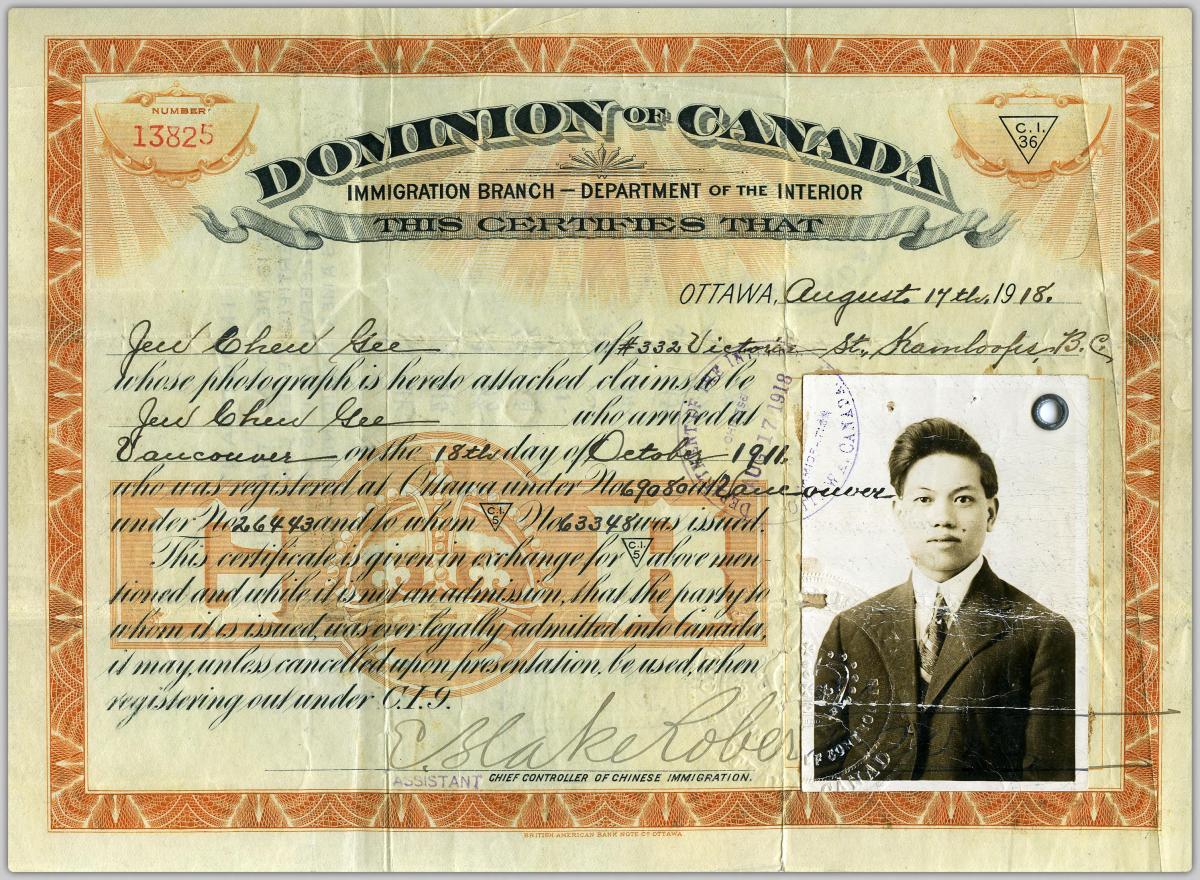 NUMBER
13825
C.I.
36
DOMINION OF CANADA
IMMIGRATION BRANCH — DEPARTMENT OF THE INTERIOR
THIS CERTIFIES THAT
OTTAWA, August 17th, 1918.
Jew Chew Gee of #332 Victoria St., Kamloops, B.C.
whose photograph is hereto attached claims to be
Jew Chew Gee who arrived at
Vancouver on the 18th day of October 1911.
who was registered at Ottawa under No 69080 at Vancouver
under No 26443 and to whom C.I. 5 No 63348 was issued.
This certificate is given in exchange for C.I. 5 above men
tioned and while it is not an admission, that the party to
whom it is issued, was ever legally admitted into Canada
it may, unless cancelled upon presentation, be used, when
registering out under C.I.9.
AUG 17 1918
E. Blake Rober
ASSISTANT CHIEF CONTROLLER OF CHINESE IMMIGRATION.
CANADA
BRITISH AMERICAN BANK NOTE CO OTTAWA